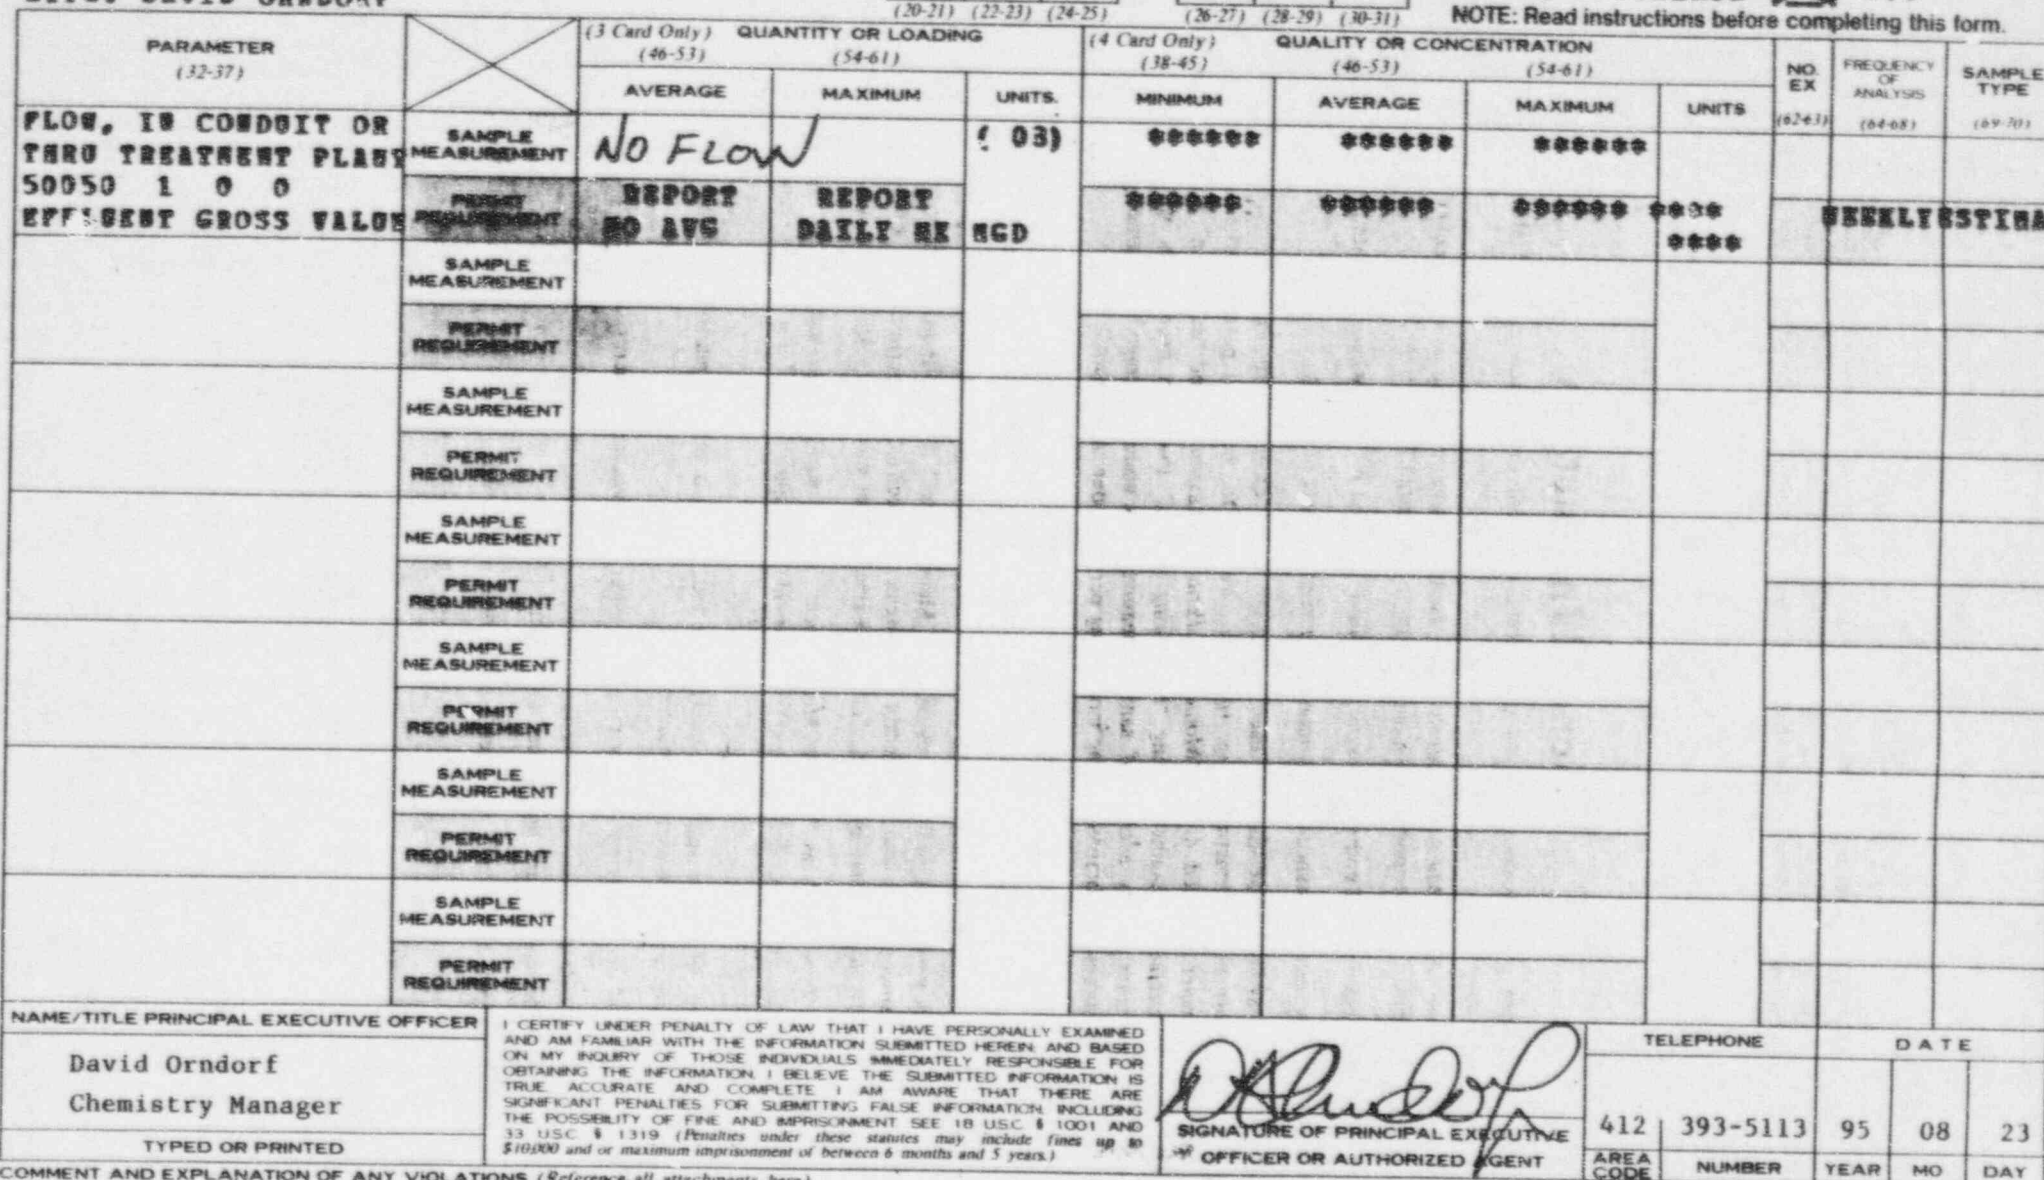 (20-21) (22-23) (24-25) (26-27) (28-29) (30-31) NOTE: Read instructions before completing this form.
PARAMETER
(32-37)
(3 Card Only) QUANTITY OR LOADING
(46-53) (54-61)
(4 Card Only) QUALITY OR CONCENTRATION
(38-45) (46-53) (54-61)
NO. EX (62-63)
FREQUENCY OF ANALYSIS (64-68)
SAMPLE TYPE (69-70)
AVERAGE MAXIMUM UNITS. MINIMUM AVERAGE MAXIMUM UNITS
FLOW, IN CONDUIT OR
THRU TREATMENT PLANT
50050 1 0 0
EFFLUENT GROSS VALUE
SAMPLE MEASUREMENT NO FLOW ( 03) ****** ****** ******
PERMIT REQUIREMENT REPORT REPORT ****** ****** ****** ****
MO AVG DAILY MX MGD **** WEEKLY ESTIMA
SAMPLE MEASUREMENT
PERMIT REQUIREMENT
SAMPLE MEASUREMENT
PERMIT REQUIREMENT
SAMPLE MEASUREMENT
PERMIT REQUIREMENT
SAMPLE MEASUREMENT
PERMIT REQUIREMENT
SAMPLE MEASUREMENT
PERMIT REQUIREMENT
SAMPLE MEASUREMENT
PERMIT REQUIREMENT
NAME/TITLE PRINCIPAL EXECUTIVE OFFICER
David Orndorf
Chemistry Manager
TYPED OR PRINTED
I CERTIFY UNDER PENALTY OF LAW THAT I HAVE PERSONALLY EXAMINED
AND AM FAMILIAR WITH THE INFORMATION SUBMITTED HEREIN AND BASED
ON MY INQUIRY OF THOSE INDIVIDUALS IMMEDIATELY RESPONSIBLE FOR
OBTAINING THE INFORMATION I BELIEVE THE SUBMITTED INFORMATION IS
TRUE ACCURATE AND COMPLETE I AM AWARE THAT THERE ARE
SIGNIFICANT PENALTIES FOR SUBMITTING FALSE INFORMATION INCLUDING
THE POSSIBILITY OF FINE AND IMPRISONMENT SEE 18 USC § 1001 AND
33 USC § 1319 (Penalties under these statutes may include fines up to
$10,000 and or maximum imprisonment of between 6 months and 5 years.)
SIGNATURE OF PRINCIPAL EXECUTIVE
OFFICER OR AUTHORIZED AGENT
TELEPHONE
412 393-5113
AREA CODE NUMBER
DATE
95 08 23
YEAR MO DAY
COMMENT AND EXPLANATION OF ANY VIOLATIONS (Reference all attachments here)